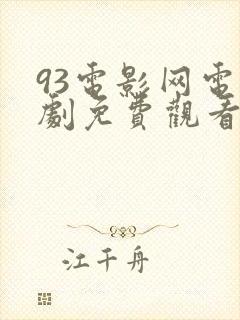 93電影网電
劇免費觀看
江千舟